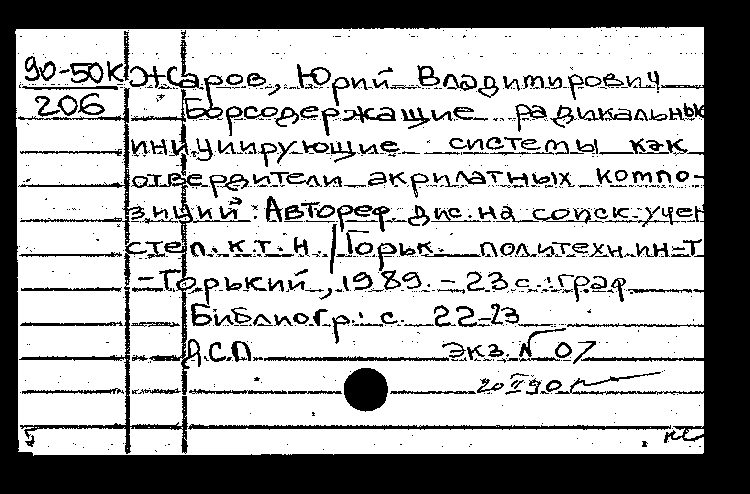 90-50К Жаров, Юрий Владимирович
206 Борсодержащие радикальные
инициирующие системы как
отвердители акрилатных компо-
зиций: Автореф. дис. на соиск. учен
степ. к.т.н. / Горьк. политехн. ин-т
- Горький, 1989. - 23 с.: граф.
Библиогр.: с. 22-23
ДСП экз. № 07
20 II 90
5